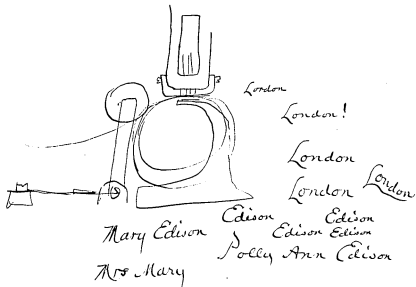 London
London!
London
London London
Edison Edison
Mary Edison Edison Edison
Polly Ann Edison
Mrs Mary